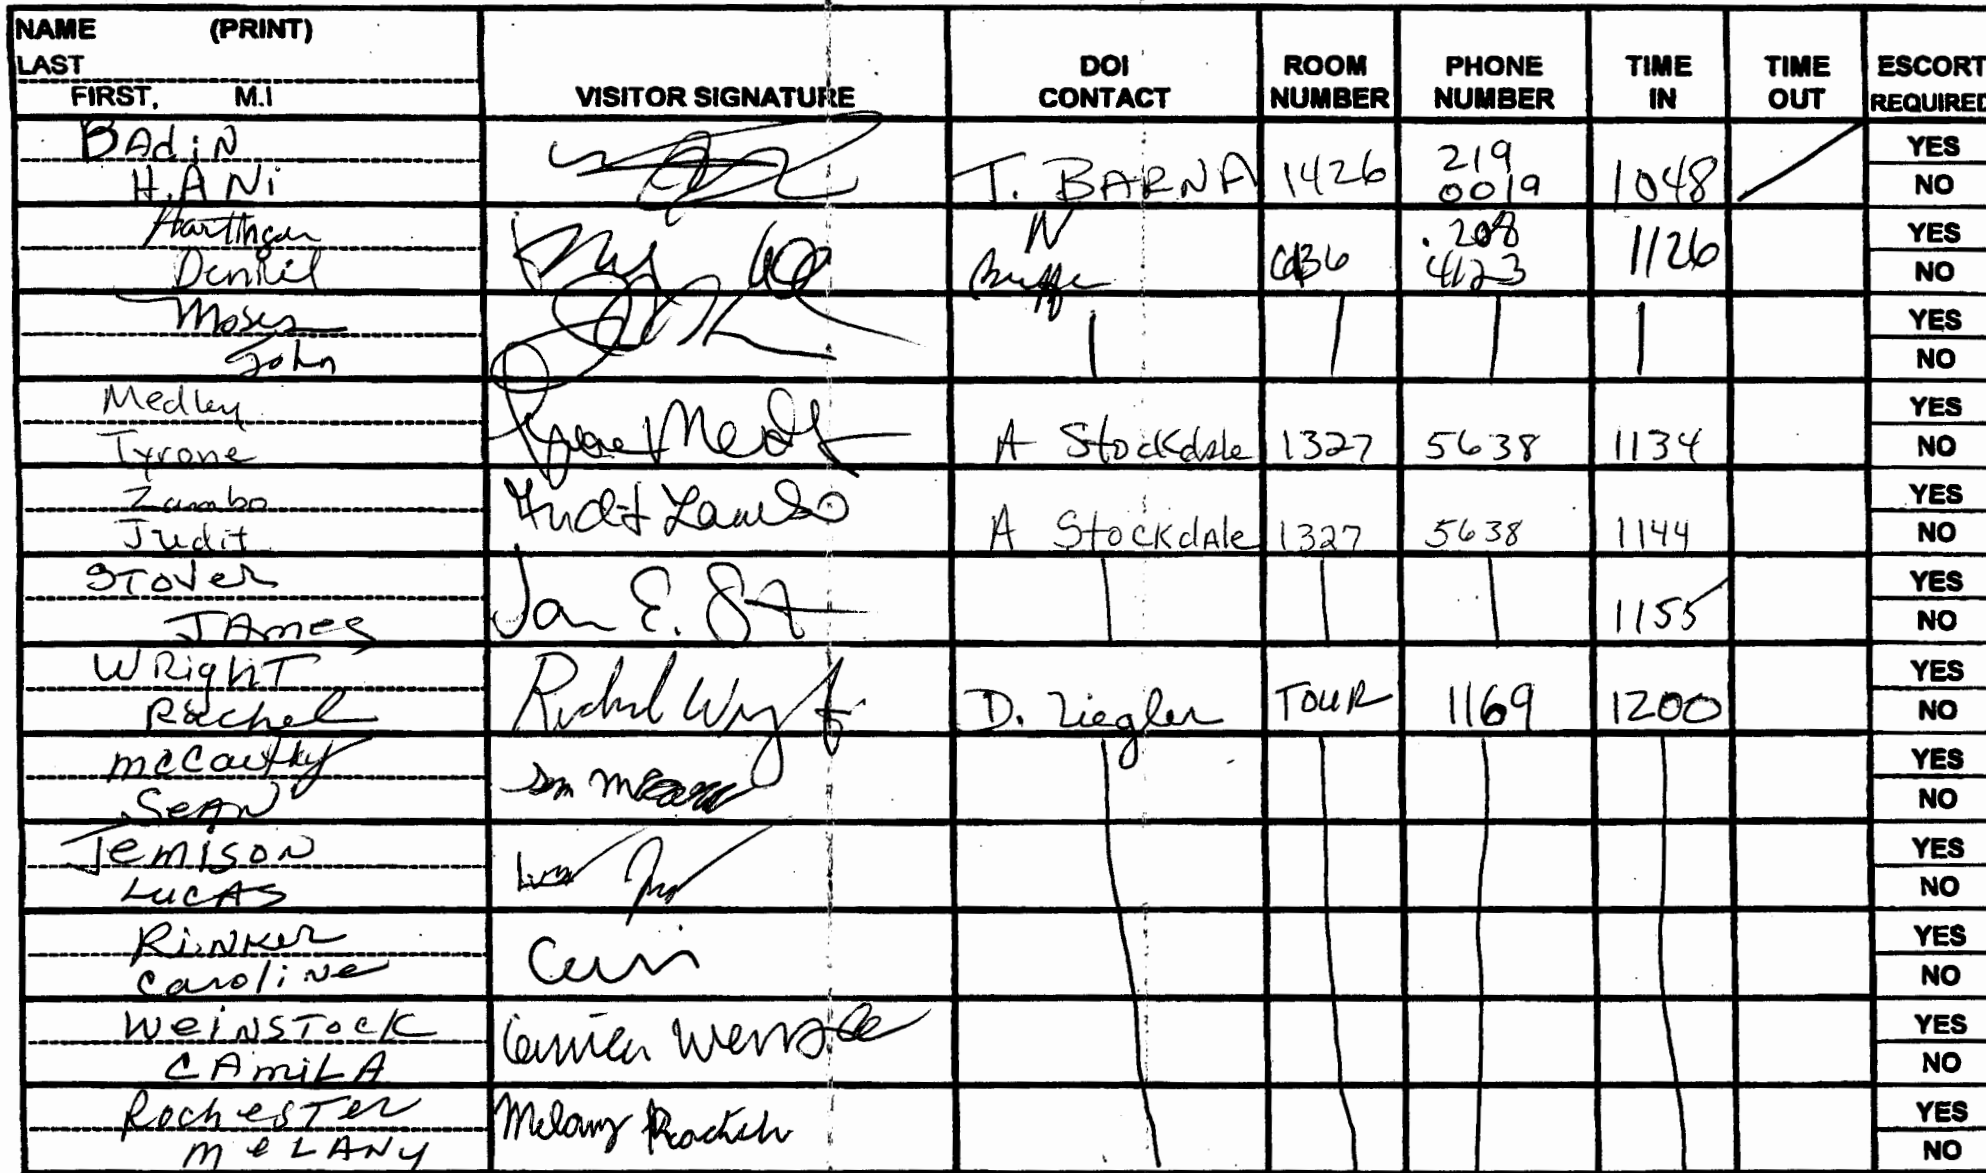 NAME (PRINT)
LAST
FIRST, M.I
VISITOR SIGNATURE
DOI CONTACT
ROOM NUMBER
PHONE NUMBER
TIME IN
TIME OUT
ESCORT REQUIRED
BADiN
HANi
T. BARNA 1426 219 0019 1048
YES
NO
Daniel
N
208 4123 1126
YES
NO
Moses
John
YES
NO
Medley
Tyrone
Tyrone Medley
A Stockdale 1327 5638 1134
YES
NO
Zambo
Judit
Judit Zambo
A StockdAle 1327 5638 1144
YES
NO
STOVER
JAmes
1155
YES
NO
WRighT
Rachel
Rachel
D. Ziegler TOUR 1169 1200
YES
NO
mcCarthy
SeAN
YES
NO
JemisoN
LUCAS
YES
NO
RiNKer
CaroliNe
YES
NO
WeiNSTocK
CAmiLA
YES
NO
RochesTer
MeLANy
Melany
YES
NO